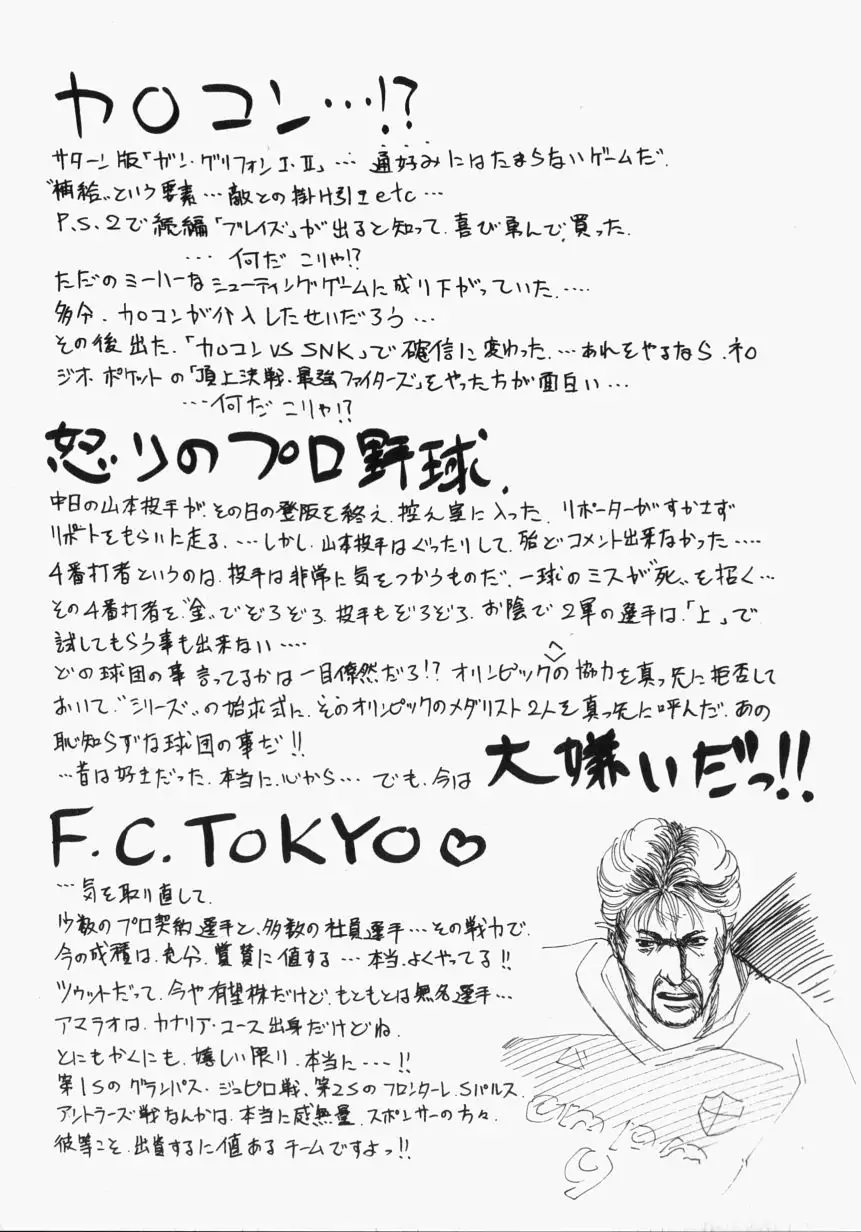 カロコン…!?
サターン版「ガン・グリフォンⅠ・Ⅱ」… 通好みにはたまらないゲームだ.
"補給"という要素…敵との掛け引きetc…
P.S.2で続編「ブレイズ」が出ると知って.喜び勇んで.買った.
… 何だ こりゃ!?
ただのミーハーなシューティングゲームに成り下がっていた.…
多分.カロコンが介入したせいだろう…
その後出た.「カロコンVS SNK」で確信に変わった.…あれをやるなら.ネロ
ジオ.ポケットの「頂上決戦.最強ファイターズ」をやった方が面白い…
…何だ こりゃ!?
怒りのプロ野球.
中日の山本投手が.その日の登板を終え.控え室に入った.リポーターがすかさず
リポートをもらいに走る.…しかし.山本投手はぐったりして.殆どコメント出来なかった…
4番打者というのは.投手は非常に気をつかうものだ.一球のミスが"死"を招く…
その4番打者を"金"でぞろぞろ.投手もぞろぞろ.お陰で2軍の選手は.「上」で
試してもらう事も出来ない…
どの球団の事言ってるかは一目瞭然だろ!? オリンピックへの協力を真っ先に拒否して
おいて."シリーズ"の始球式に.そのオリンピックのメダリスト2人を真っ先に呼んだ.あの
恥知らずな球団の事だ!!
…昔は好きだった.本当に.心から… でも.今は 大嫌いだっ!!
F.C.TOKYO♡
…気を取り直して.
少数のプロ契約選手と.多数の社員選手…その戦力で.
今の成績は.充分.賞賛に値する…本当.よくやってる!!
ツゥットだって.今や有望株だけど.もともとは無名選手…
アマラオは.カナリア・ユース出身だけどね.
とにもかくにも.嬉しい限り.本当に…!!
第1Sのグランパス・ジュビロ戦、第2Sのフロンターレ.Sパルス.
アントラーズ戦なんかは.本当に感無量.スポンサーの方々.
彼等こそ.出資するに値あるチームですよっ!!
9